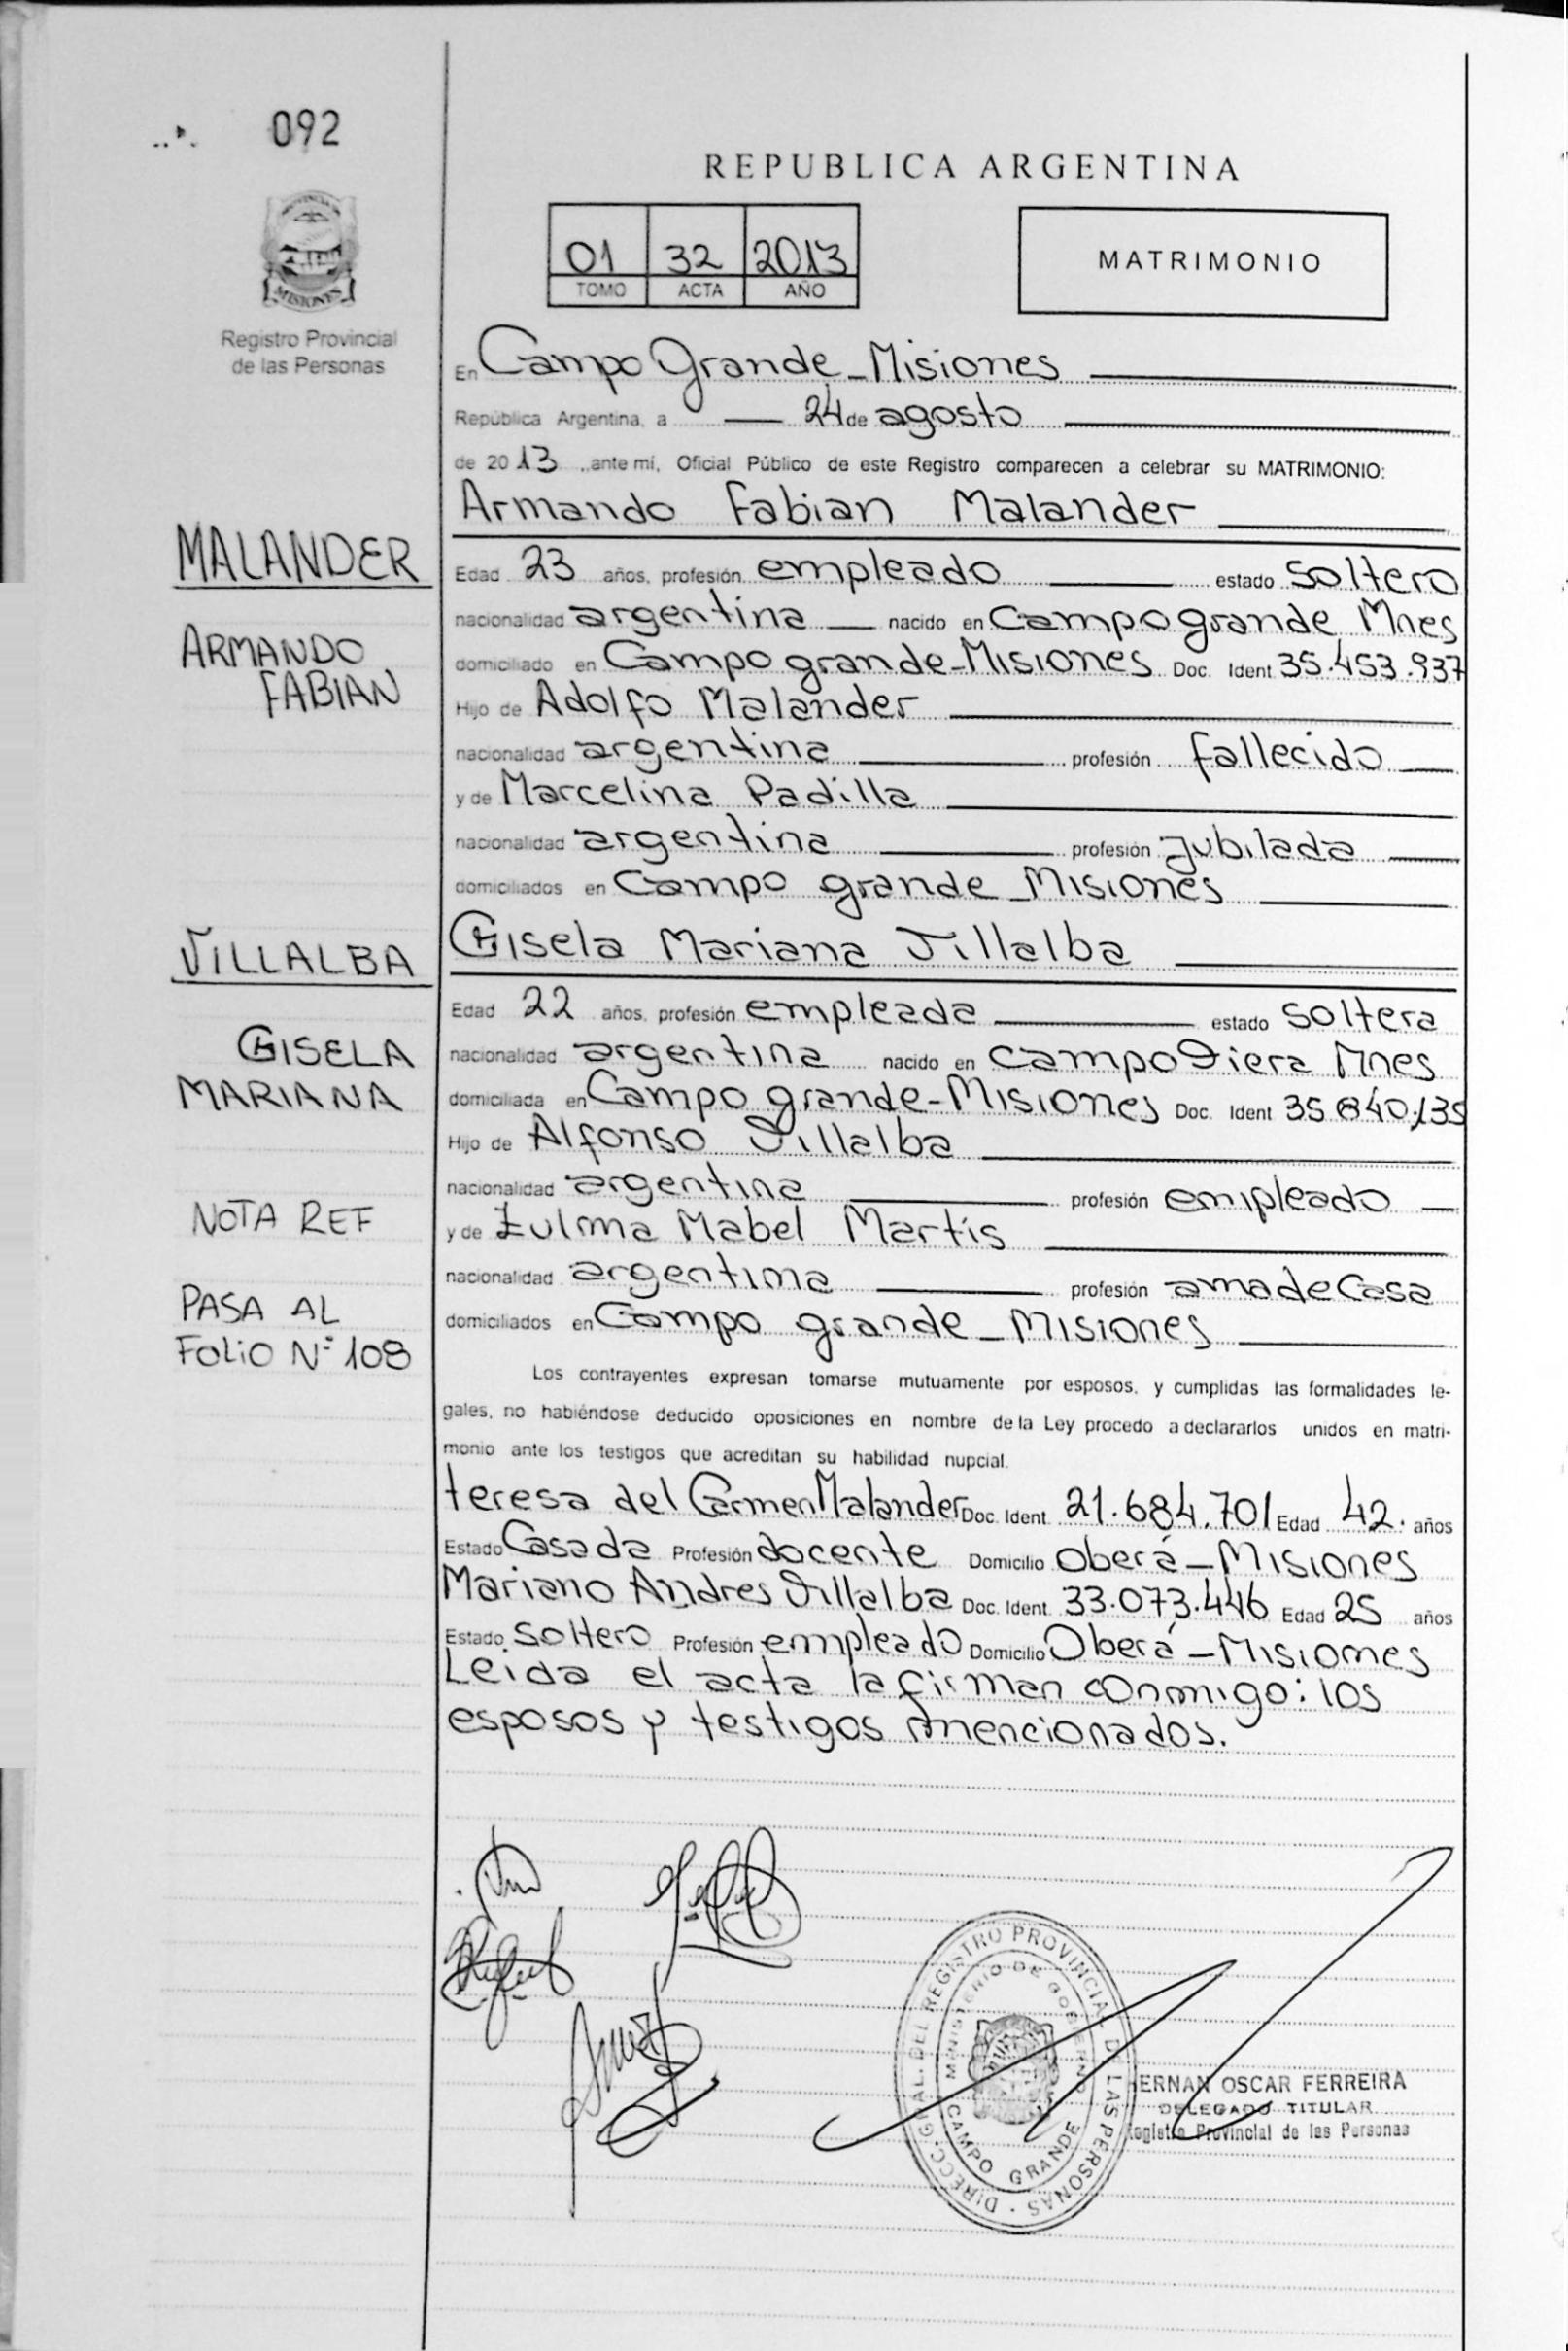 092
REPUBLICA ARGENTINA
01 32 2013
TOMO ACTA AÑO
MATRIMONIO
MISIONES
Registro Provincial
de las Personas
En Campo Grande - Misiones
República Argentina, a 24 de agosto
de 2013, ante mí, Oficial Público de este Registro comparecen a celebrar su MATRIMONIO:
Armando Fabian Malander
MALANDER
Edad 23 años, profesión empleado estado soltero
nacionalidad argentina nacido en Campo grande Mnes
ARMANDO
FABIAN
domiciliado en Campo grande - Misiones Doc. Ident 35.453.937
Hijo de Adolfo Malander
nacionalidad argentina profesión fallecido
y de Marcelina Padilla
nacionalidad argentina profesión Jubilada
domiciliados en Campo grande - Misiones
Gisela Mariana Villalba
VILLALBA
Edad 22 años, profesión empleada estado soltera
GISELA
MARIANA
nacionalidad argentina nacido en campo Viera Mnes
domiciliada en Campo grande - Misiones Doc. Ident 35.840.135
Hijo de Alfonso Villalba
nacionalidad argentina profesión empleado
NOTA REF
y de Zulma Mabel Martis
nacionalidad argentina profesión ama de Casa
PASA AL
FOLIO Nº 108
domiciliados en Campo grande - Misiones
Los contrayentes expresan tomarse mutuamente por esposos, y cumplidas las formalidades le-
gales, no habiéndose deducido oposiciones en nombre de la Ley procedo a declararlos unidos en matri-
monio ante los testigos que acreditan su habilidad nupcial.
teresa del Carmen Malander Doc. Ident. 21.684.701 Edad 42. años
Estado Casada Profesión docente Domicilio Oberá - Misiones
Mariano Andres Villalba Doc. Ident. 33.073.446 Edad 25 años
Estado Soltero Profesión empleado Domicilio Oberá - Misiones
Leida el acta la firman conmigo: los
esposos y testigos mencionados.
DIRECC. GRAL. DEL REGISTRO PROVINCIAL DE LAS PERSONAS
MINISTERIO DE GOBIERNO
CAMPO GRANDE
ERNAN OSCAR FERREIRA
DELEGADO TITULAR
Registro Provincial de las Personas